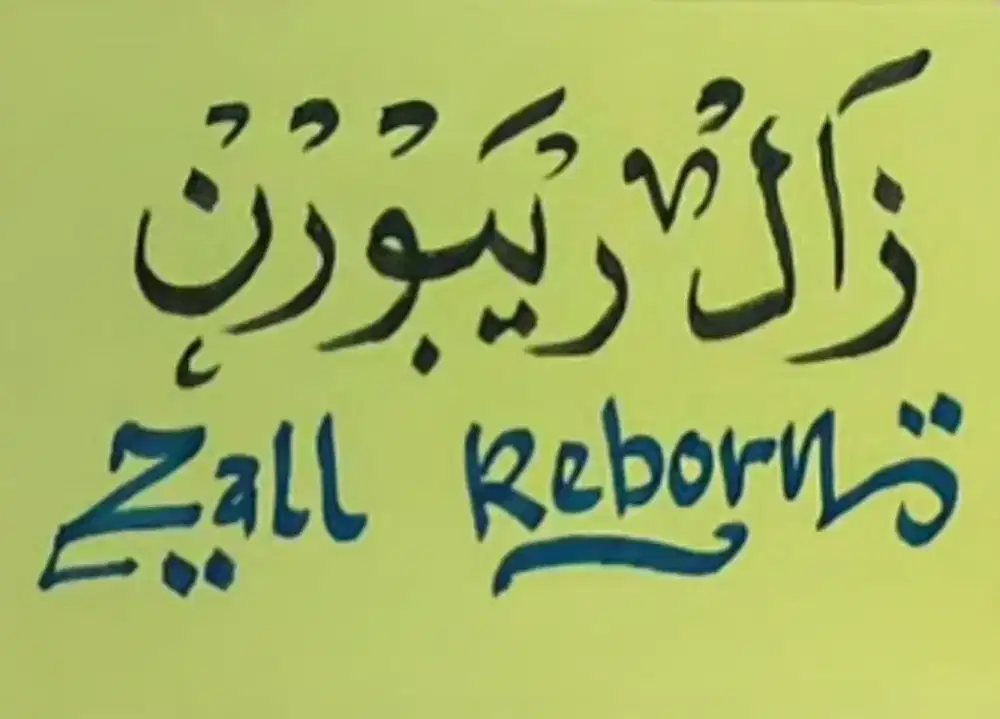 زَالْ رِيْبَوْرْنْ
Zall Reborn